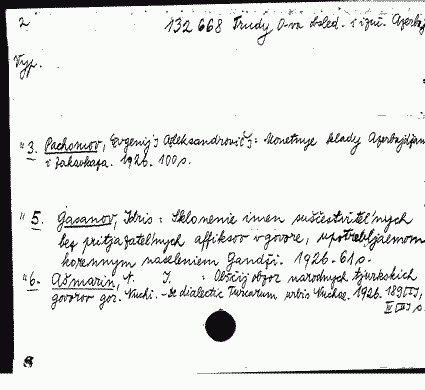 2 132 668 Trudy O-va obsled. i izuč. Azerbajd
Vyp.
" 3. Pachomov, Evgenij Aleksandrovič: Monetnye klady Azerbajdžan
i Zakavkaza. 1926. 100 s.
" 5. Gasanov, Idris: Sklonenie imen suščestvitel'nych
bez pritjažatel'nych affiksov v govore, upotrebljaemom
korennym naseleniem Gandži. 1926. 61 s.
" 6. Ašmarin, N. I. : Obščij obzor narodnych tjurkskich
govorov gor. Nuchi. - De dialectis Turcarum urbis Nuchae. 1926. 189 (I),
8